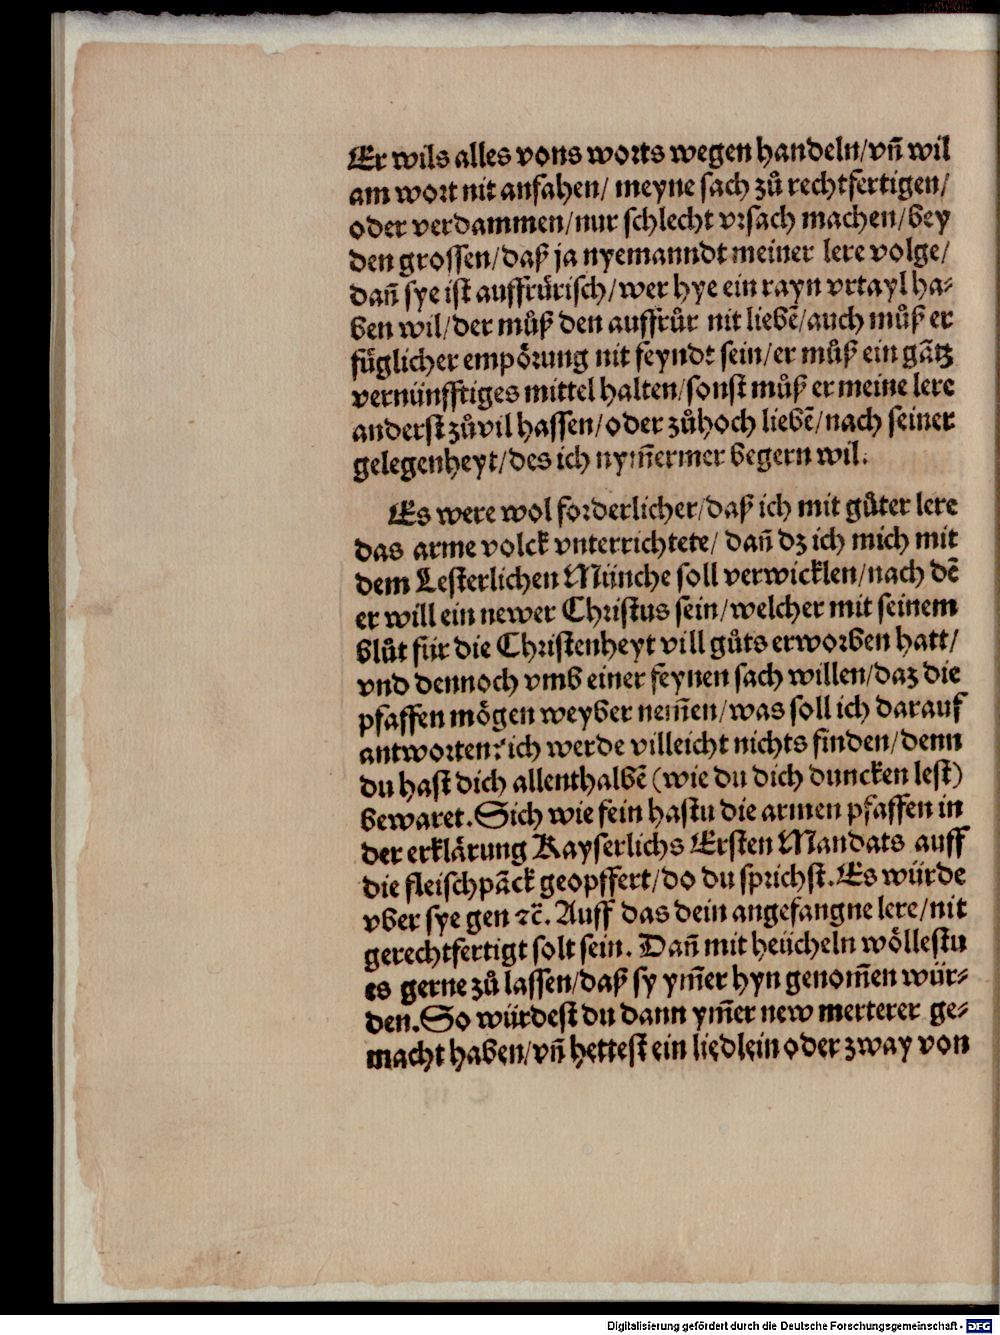 Er wils alles vons worts wegen handeln/vn̄ wil
am wort nit anfahen/ meyne sach zů rechtfertigen/
oder verdammen/nur schlecht vrsach machen/bey
den grossen/daß ja nyemanndt meiner lere volge/
dan̄ sye ist auffrürisch/wer hye ein rayn vrtayl ha-
ben wil/der můß den auffrůr nit liebē/auch můß er
füglicher empörung nit feyndt sein/er můß ein gātz
vernünfftiges mittel halten/sonst můß er meine lere
anderst zůvil hassen/oder zůhoch liebē/nach seiner
gelegenheyt/des ich nym̄ermer begern wil.
Es were wol forderlicher/daß ich mit gůter lere
das arme volck vnterrichtete/ dan̄ dz ich mich mit
dem Lesterlichen Münche soll verwicklen/nach dē
er will ein newer Christus sein/welcher mit seinem
blůt für die Christenheyt vill gůts erworben hatt/
vnd dennoch vmb einer feynen sach willen/daz die
pfaffen mögen weyber nem̄en/was soll ich darauf
antworten? ich werde villeicht nichts finden/denn
du hast dich allenthalbē (wie du dich duncken lest)
bewaret. Sich wie fein hastu die armen pfaffen in
der erklärung Kayserlichs Ersten Mandats auff
die fleischpāck geopffert/do du sprichst. Es würde
vber sye gen ⁊c̄. Auff das dein angefangne lere/nit
gerechtfertigt solt sein. Dan̄ mit heücheln wöllestu
es gerne zů lassen/daß sy ym̄er hyn genom̄en wür-
den. So würdest du dann ym̄er new merterer ge-
macht haben/vn̄ hettest ein liedlein oder zway von
Digitalisierung gefördert durch die Deutsche Forschungsgemeinschaft - DFG